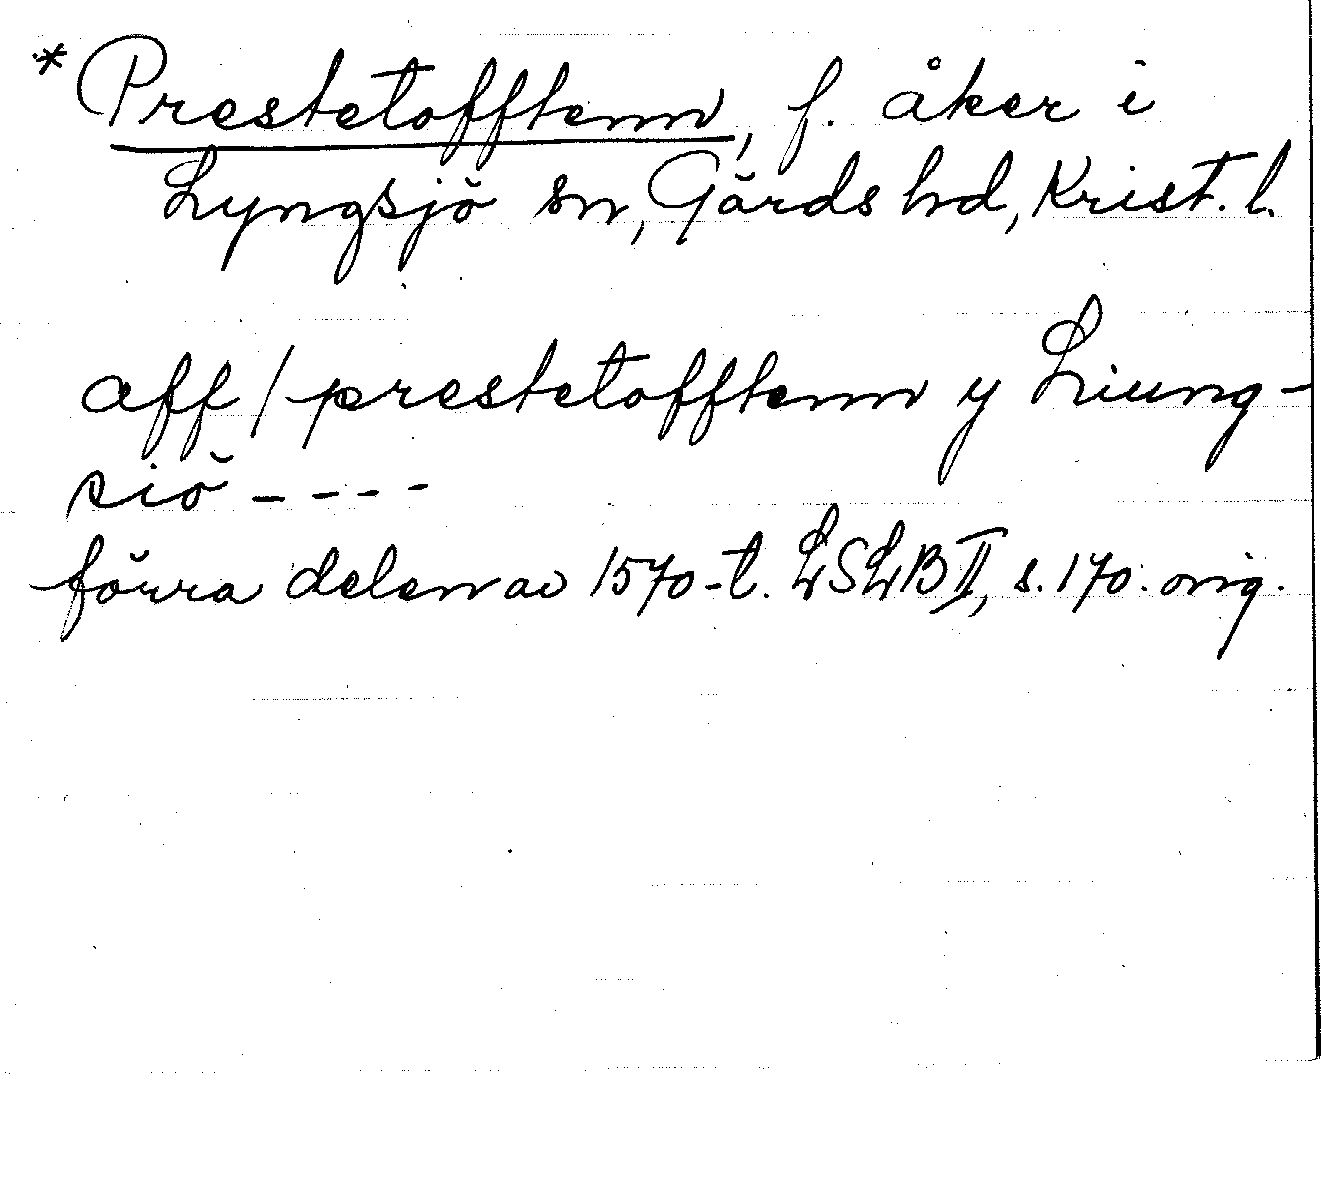 *Prestetofftenn, f. åker i
Lyngsjö sn, Gärds hd, Krist. l.
aff / prestetofftenn y Liung-
siö - - - -
förra delen av 1570-t. LSLB II, s. 170. orig.